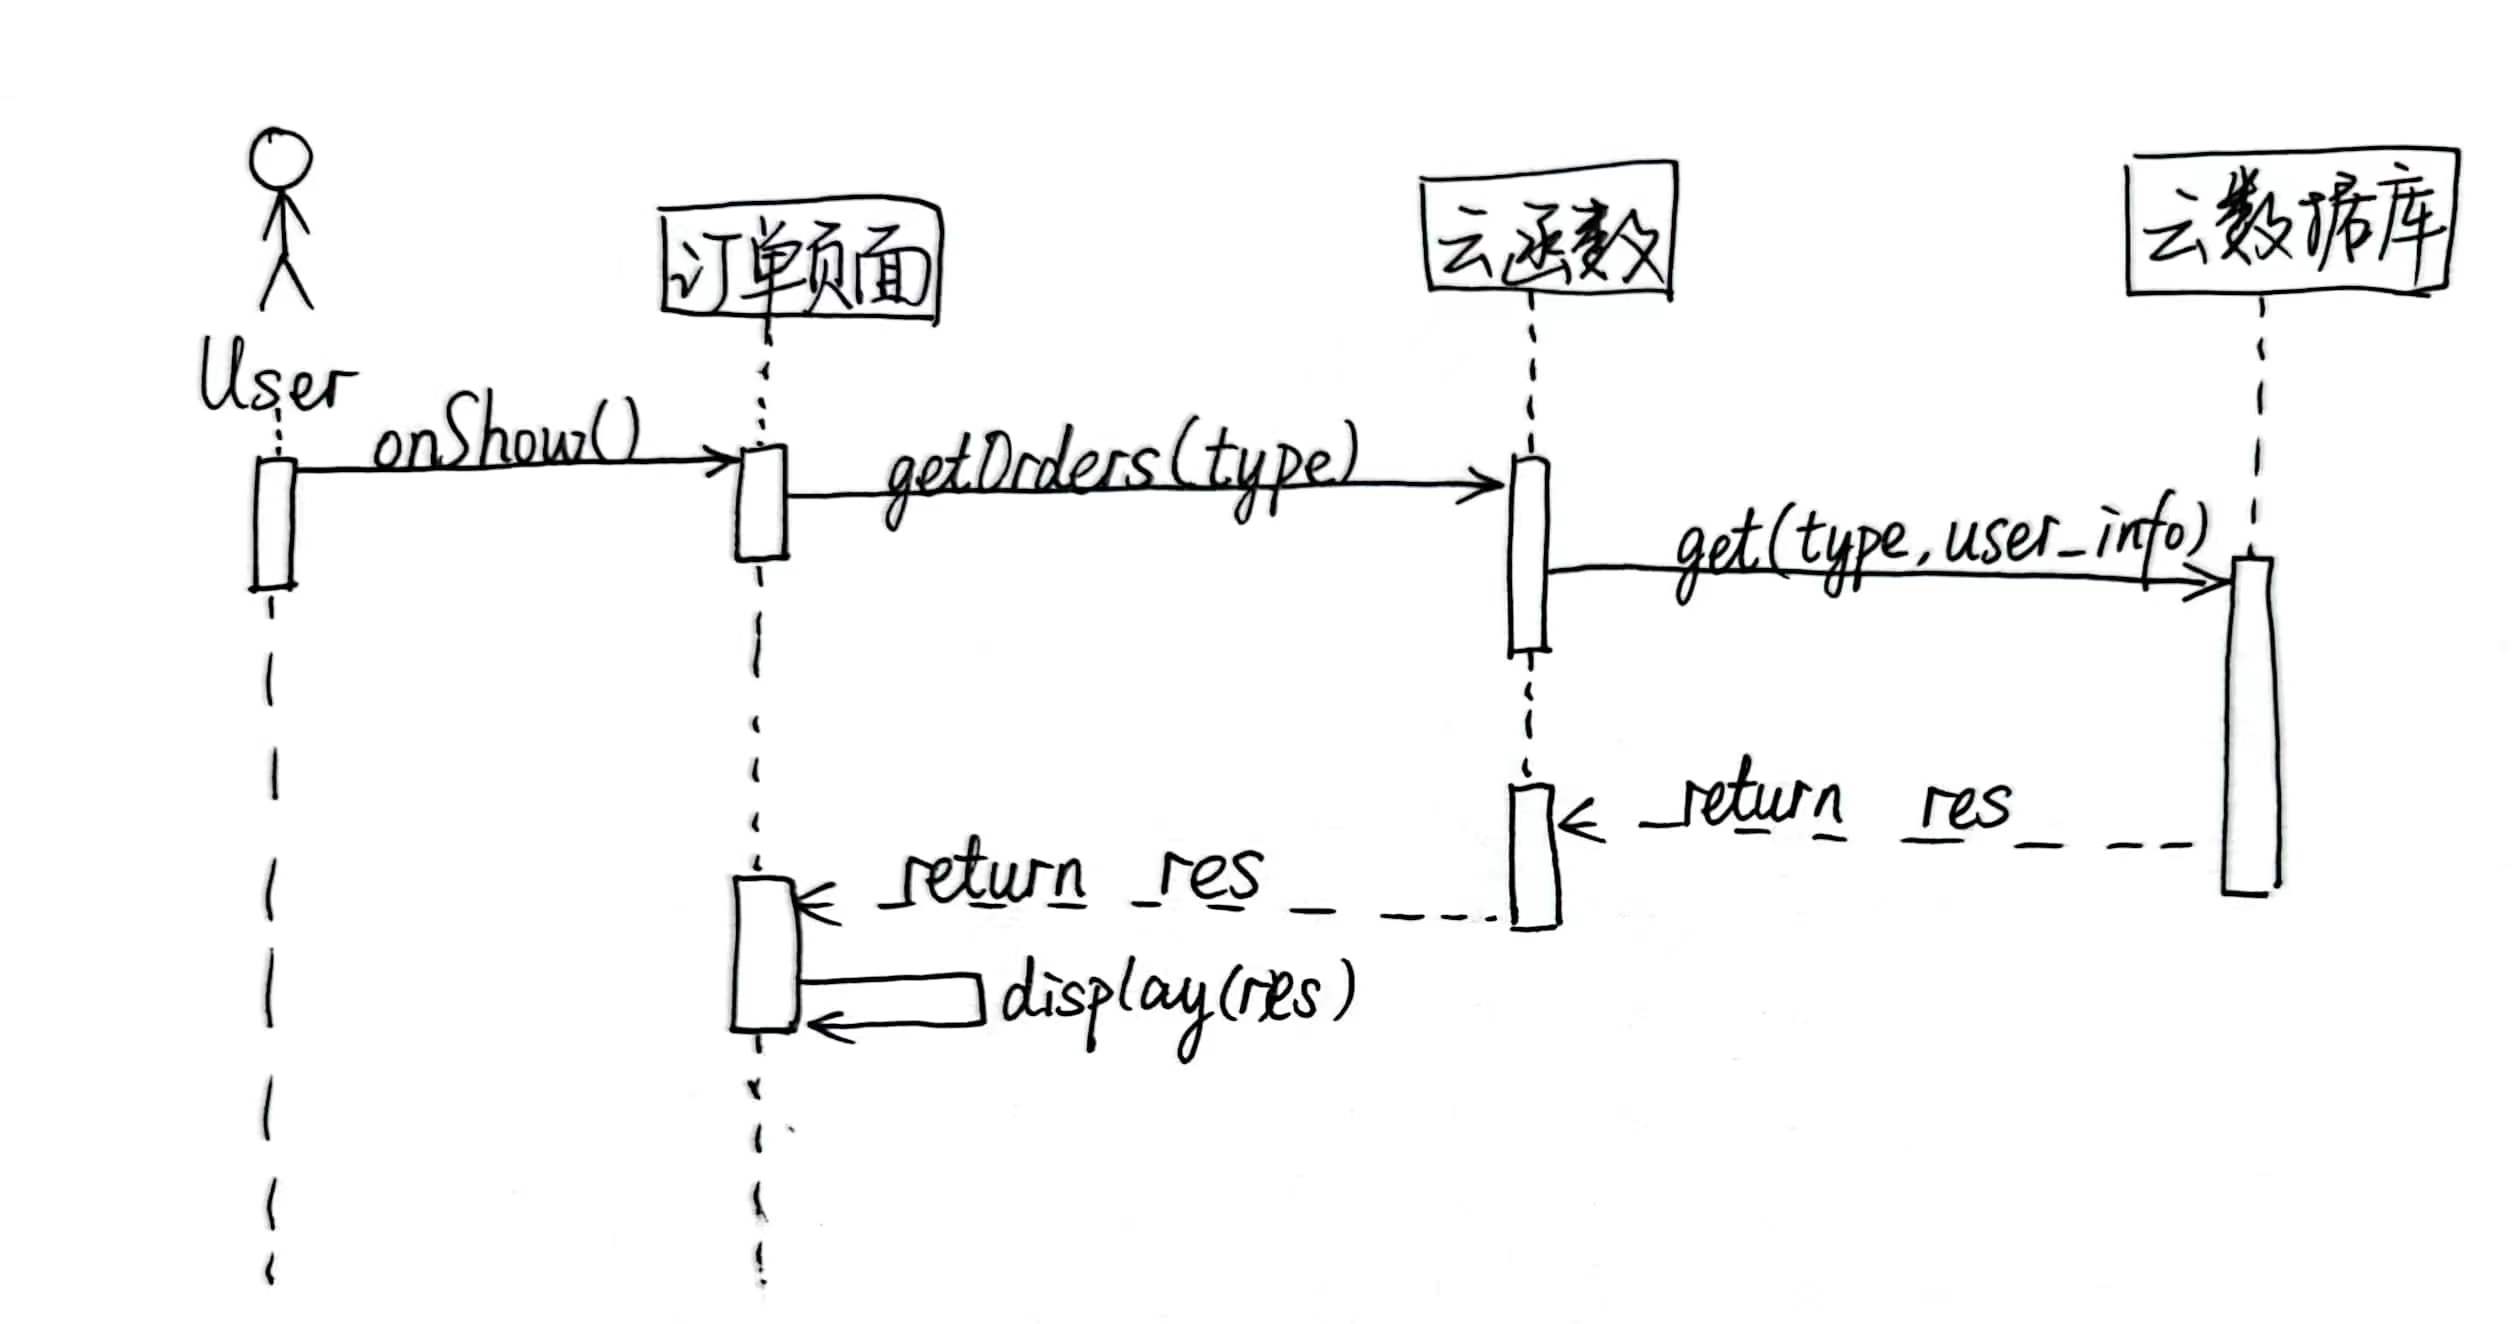 User
订单页面
云函数
云数据库
onShow()
getOrders(type)
get(type,user_info)
return res
return res
display(res)